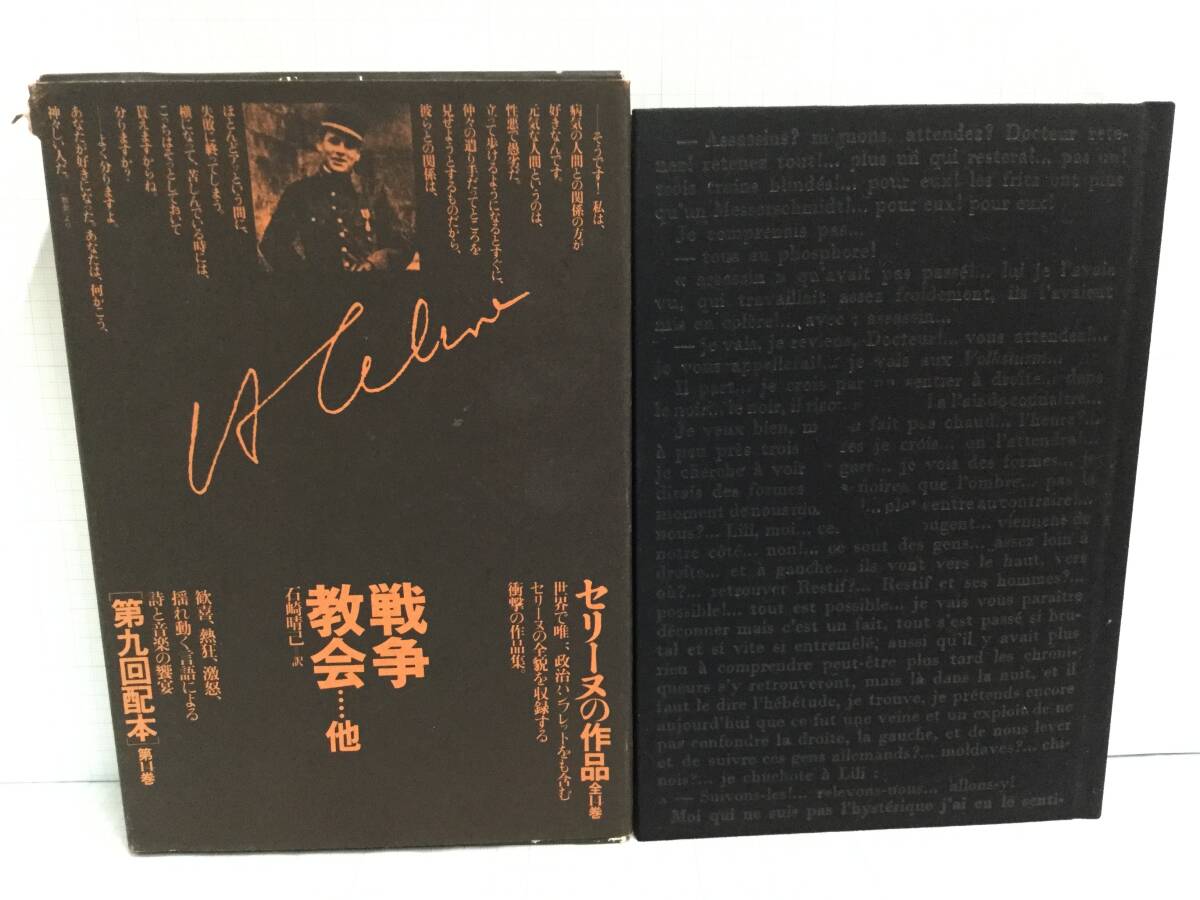 ――そうです！ 私は、
病人の人間との関係の方が
好きなんです。
元気な人間というのは、
性悪で愚劣だ。
立って歩けるようになるとすぐに、
仲々の遣り手だってところを
見せようとするものだから、
彼らとの関係は、
ほとんどアッという間に、
失敗に終ってしまう。
横になって、苦しんでいる時には、
こっちはそっとしておいて
貰えますからね。
分りますか？
――よく分りますよ。
あなたが好きになった、あなたは、何かこう、
神々しい人だ。
Céline
セリーヌの作品 全14巻
世界で唯一、政治パンフレットをも含む
セリーヌの全貌を収録する
衝撃の作品集。
戦争
教会……他
石崎晴己 訳
歓喜、熱狂、激怒、
揺れ動く言語による
詩と音楽の饗宴
［第九回配本］第14巻
— Assassins? mignons, attendez? Docteur rete-
nez! retenez tous!... plus un qui restera!... pas un!
trois trains blindés!... pour eux! les fritz ont plus
qu'un Messerschmidt!... pour eux! pour eux!
Je comprenais pas...
— tous au phosphore!
« assassin » qu'avait pas passé!... lui je l'avais
vu, qui travaillait assez froidement, ils l'avaient
mis en colère!... avec : assassin...
— je vais, je reviens, Docteur!... vous attendez!...
je vous appellerai!... je vais aux Volksturm...
Il part... je crois par un sentier à droite... dans
le noir... le noir, il
Je veux bien, fait pas chaud... l'heure?...
à peu près trois je crois... on l'attendra!...
je cherche à voir je vois des formes... je
dirais des formes noires que l'ombre... pas le
moment de nous entre au contraire!...
nous?... Lili, moi... bougent... viennent de
notre côté... non!... ce sont des gens... assez loin à
droite... et à gauche... ils vont vers le haut, vers
où?... retrouver Restif?... Restif et ses hommes?...
possible!... tout est possible... je vais vous paraître
déconner mais c'est un fait, tout s'est passé si bru-
tal et si vite si entremêlé, aussi qu'il y avait plus
rien à comprendre peut-être plus tard les chroni-
queurs s'y retrouveront, mais là dans la nuit, et il
faut le dire l'hébétude, je trouve, je prétends encore
aujourd'hui que ce fut une veine et un exploit de ne
pas confondre la droite, la gauche, et de nous lever
et de suivre ces gens allemands?... moldaves?... chi-
nois?... je chuchote à Lili :
— Suivons-les!... relevons-nous... allons-y!
Moi qui ne suis pas l'hystérique j'ai eu le senti-